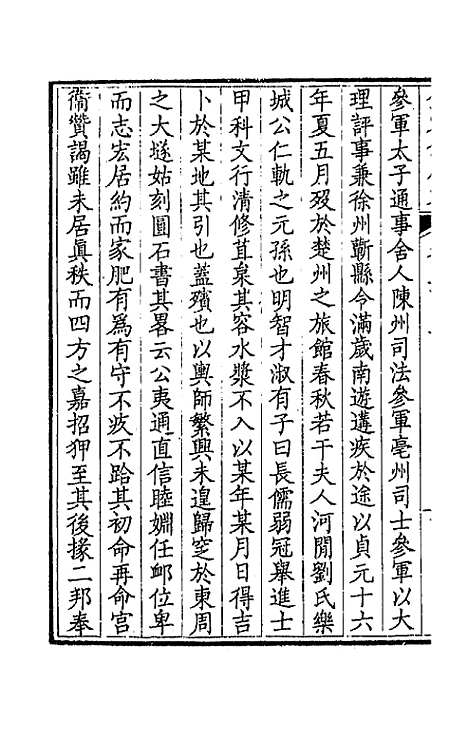 參軍太子通事舍人陳州司法參軍亳州司士參軍以大
理評事兼徐州蘄縣令滿歲南遊遘疾於途以貞元十六
年夏五月歿於楚州之旅館春秋若干夫人河閒劉氏樂
城公仁軌之元孫也明智才淑有子曰長儒弱冠舉進士
甲科文行清修苴枲其容水漿不入以某年某月日得吉
卜於某地其引也蓋殯也以輿師繁興未遑歸窆於東周
之大墢姑刻圓石書其畧云公夷通直信睦婣任卹位卑
而志宏居約而家肥有爲有守不疚不跲其初命再命宮
衞贊謁雖未居眞秩而四方之嘉招狎至其後掾二邦奉